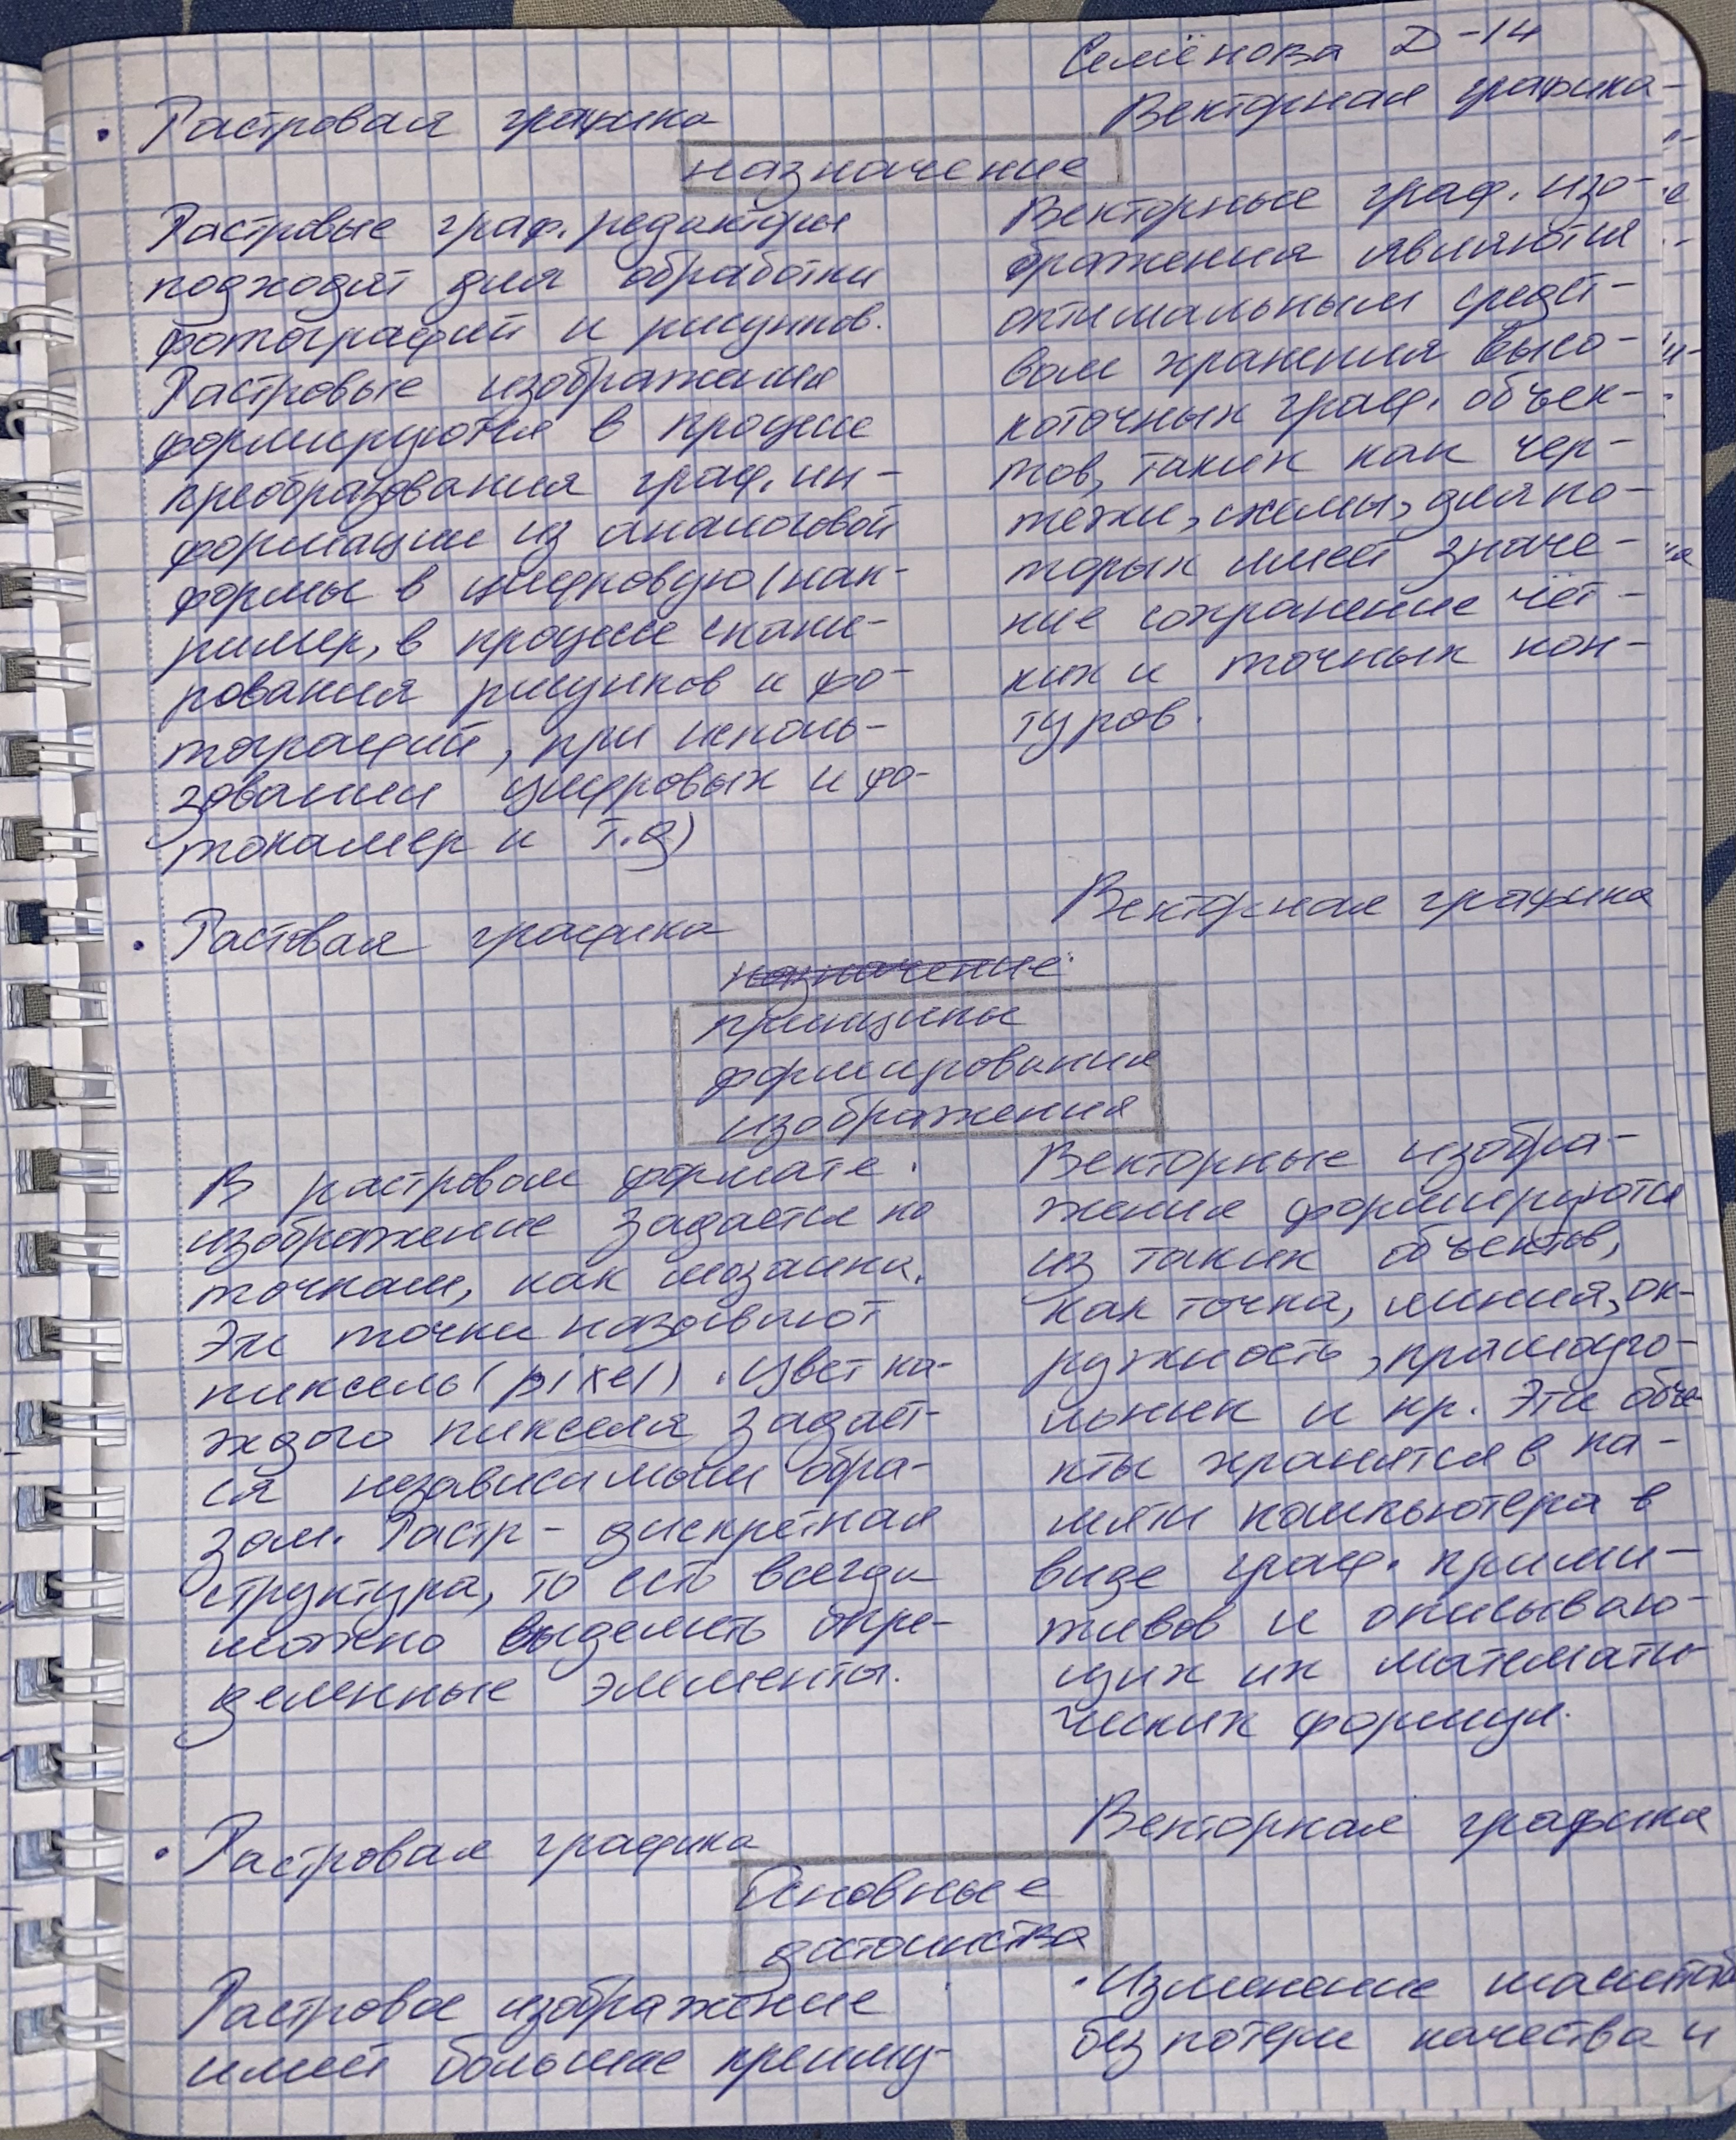 Семёнова Д-14
Растровая графика
Векторная графика
назначение
Растровые граф. редакторы
подходят для обработки
фотографий и рисунков.
Растровые изображения
формируются в процессе
преобразования граф. ин-
формации из аналоговой
формы в цифровую (нап-
ример, в процессе скани-
рования рисунков и фо-
тографий, при исполь-
зовании цифровых и фо-
токамер и т.д)
Векторные граф. изо-
бражения являются
оптимальным средст-
вом хранения высо-
коточных граф. объек-
тов, таких как чер-
тежи, схемы, для ко-
торых имеет значе-
ние сохранение чёт-
ких и точных кон-
туров.
• Растовая графика
Векторная графика
назначение
принципы
формирования
изображения
В растровом формате
изображение задается по
точкам, как мозаика.
Эти точки называют
пиксель (pixel). Цвет ка-
ждого пикселя задаёт-
ся независимым обра-
зом. Растр - дискретная
структура, то есть всегда
можно выделить опре-
деленные элементы.
Векторные изобра-
жения формируются
из таких объектов,
как точка, линия, ок-
ружность, прямоуго-
льник и пр. Эти объе-
кты хранятся в па-
мяти компьютера в
виде граф. прими-
тивов и описываю-
щих их математи-
ческих формул.
• Растровая графика
Векторная графика
Основные
достоинства
Растровое изображение
имеет большое преиму-
• Изменение масштаб
без потери качества и